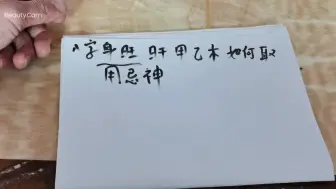 BeautyCam
八字身旺 时甲乙木如何取
用忌神